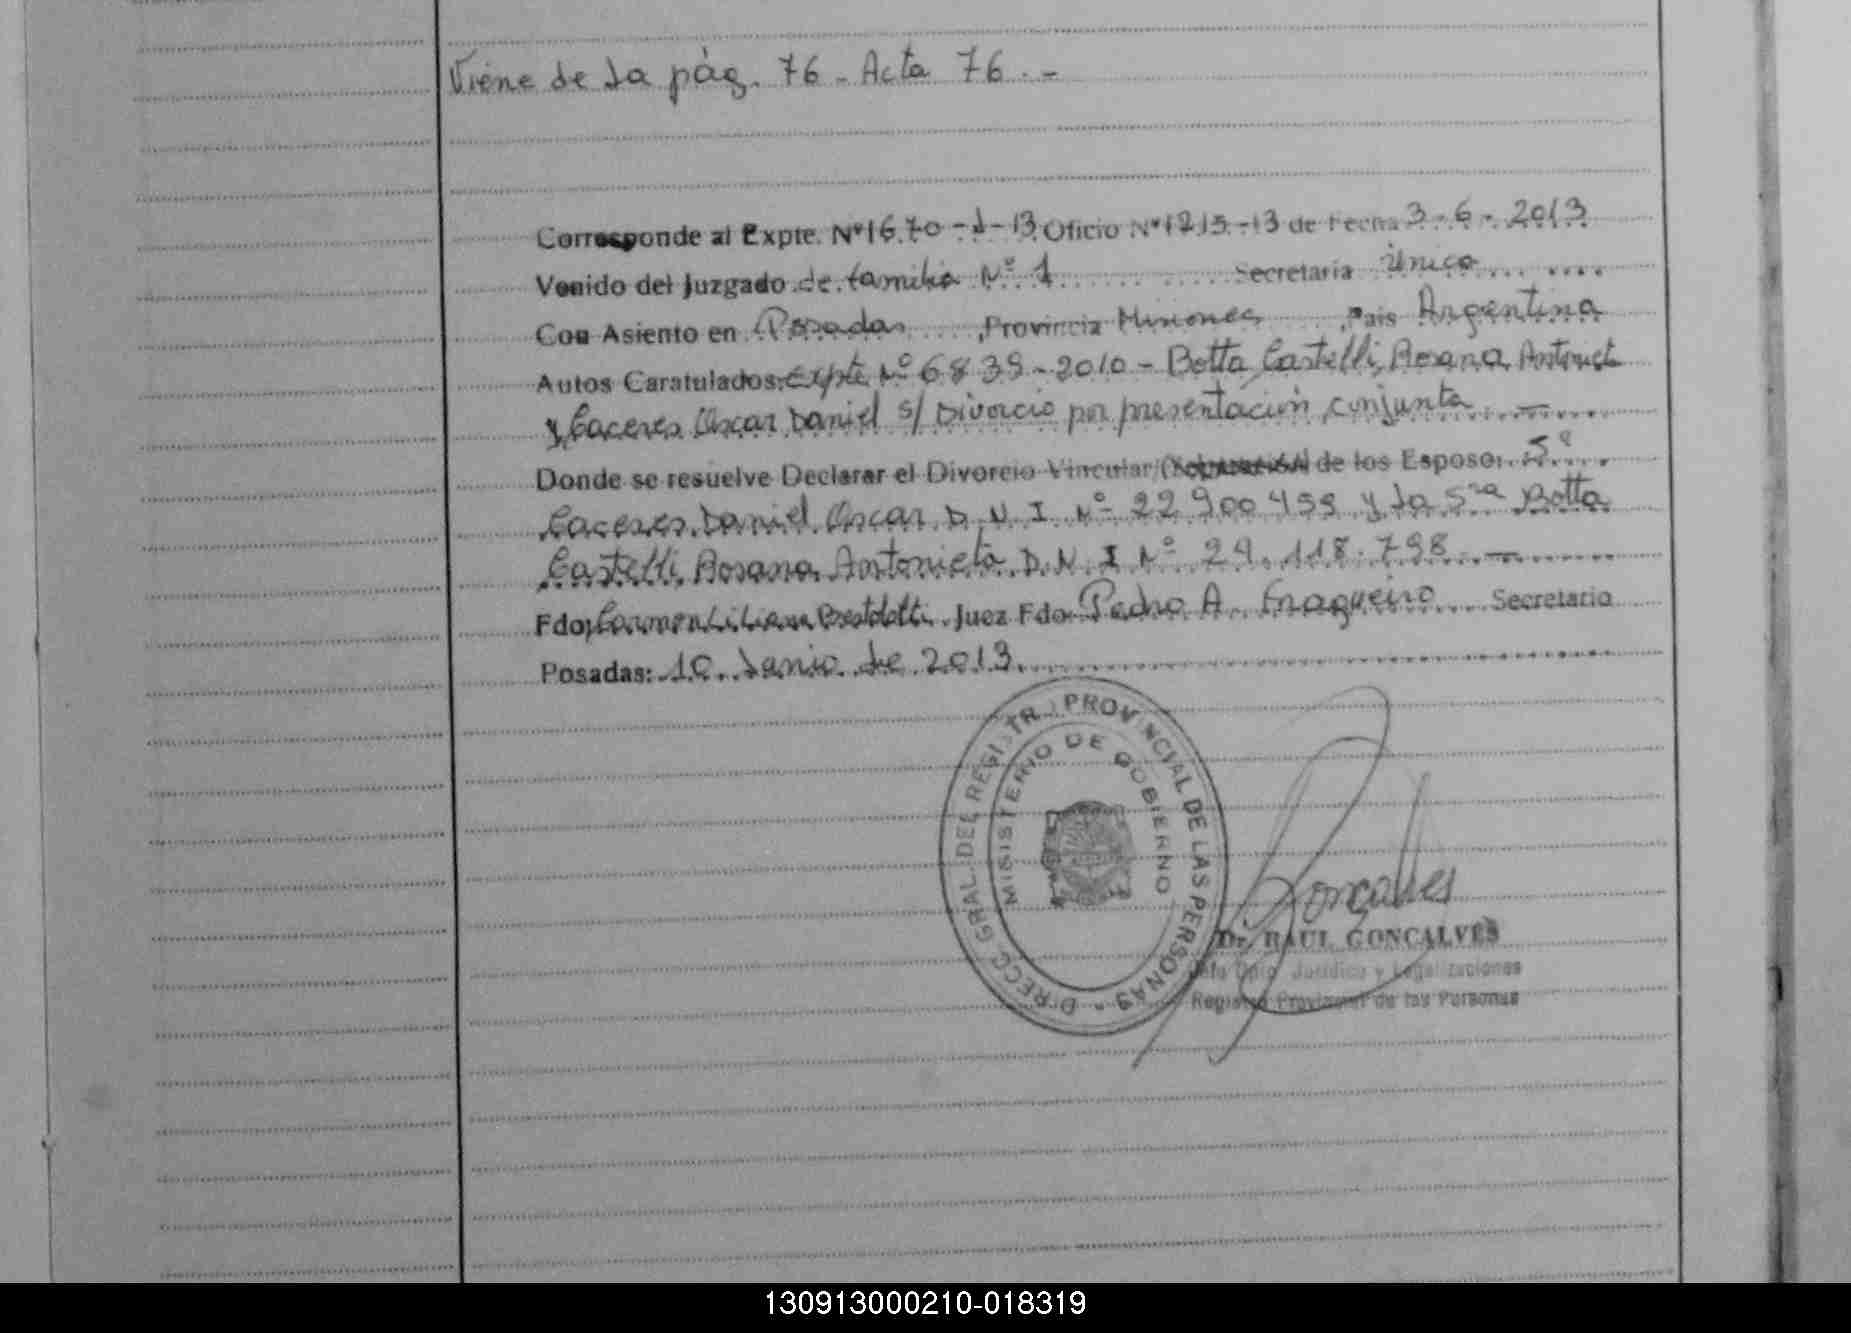 Viene de la pág. 76 - Acta 76 . -
Corresponde al Expte. Nº 1670 - J - 13 Oficio Nº 1215 - 13 de Fecha 3 - 6 - 2013
Venido del Juzgado de familia Nº 1 Secretaria Única
Con Asiento en Posadas, Provincia Misiones, Pais Argentina
Autos Caratulados: Expte Nº 6839 - 2010 - Botta Castelli, Rosana Antonieta
y Caceres Oscar Daniel s/ Divorcio por presentación conjunta —
Donde se resuelve Declarar el Divorcio Vincular de los Esposos Sº
Caceres Daniel Oscar D. N. I Nº 22 900 459 y la Sra Botta
Castelli, Rosana Antonieta D. N. I Nº 24.118.798 —
Fdo, Carmen Liliana Bertolotti Juez Fdo Pedro A. Fragueiro Secretario
Posadas: 10 Junio de 2013
DIRECC. GRAL. DEL REGISTRO PROVINCIAL DE LAS PERSONAS -
MISISTERIO DE GOBIERNO
Goncalves
Dr. RAUL GONCALVES
Jefe Dpto. Jurídico y Legalizaciones
Registro Provincial de las Personas
130913000210-018319